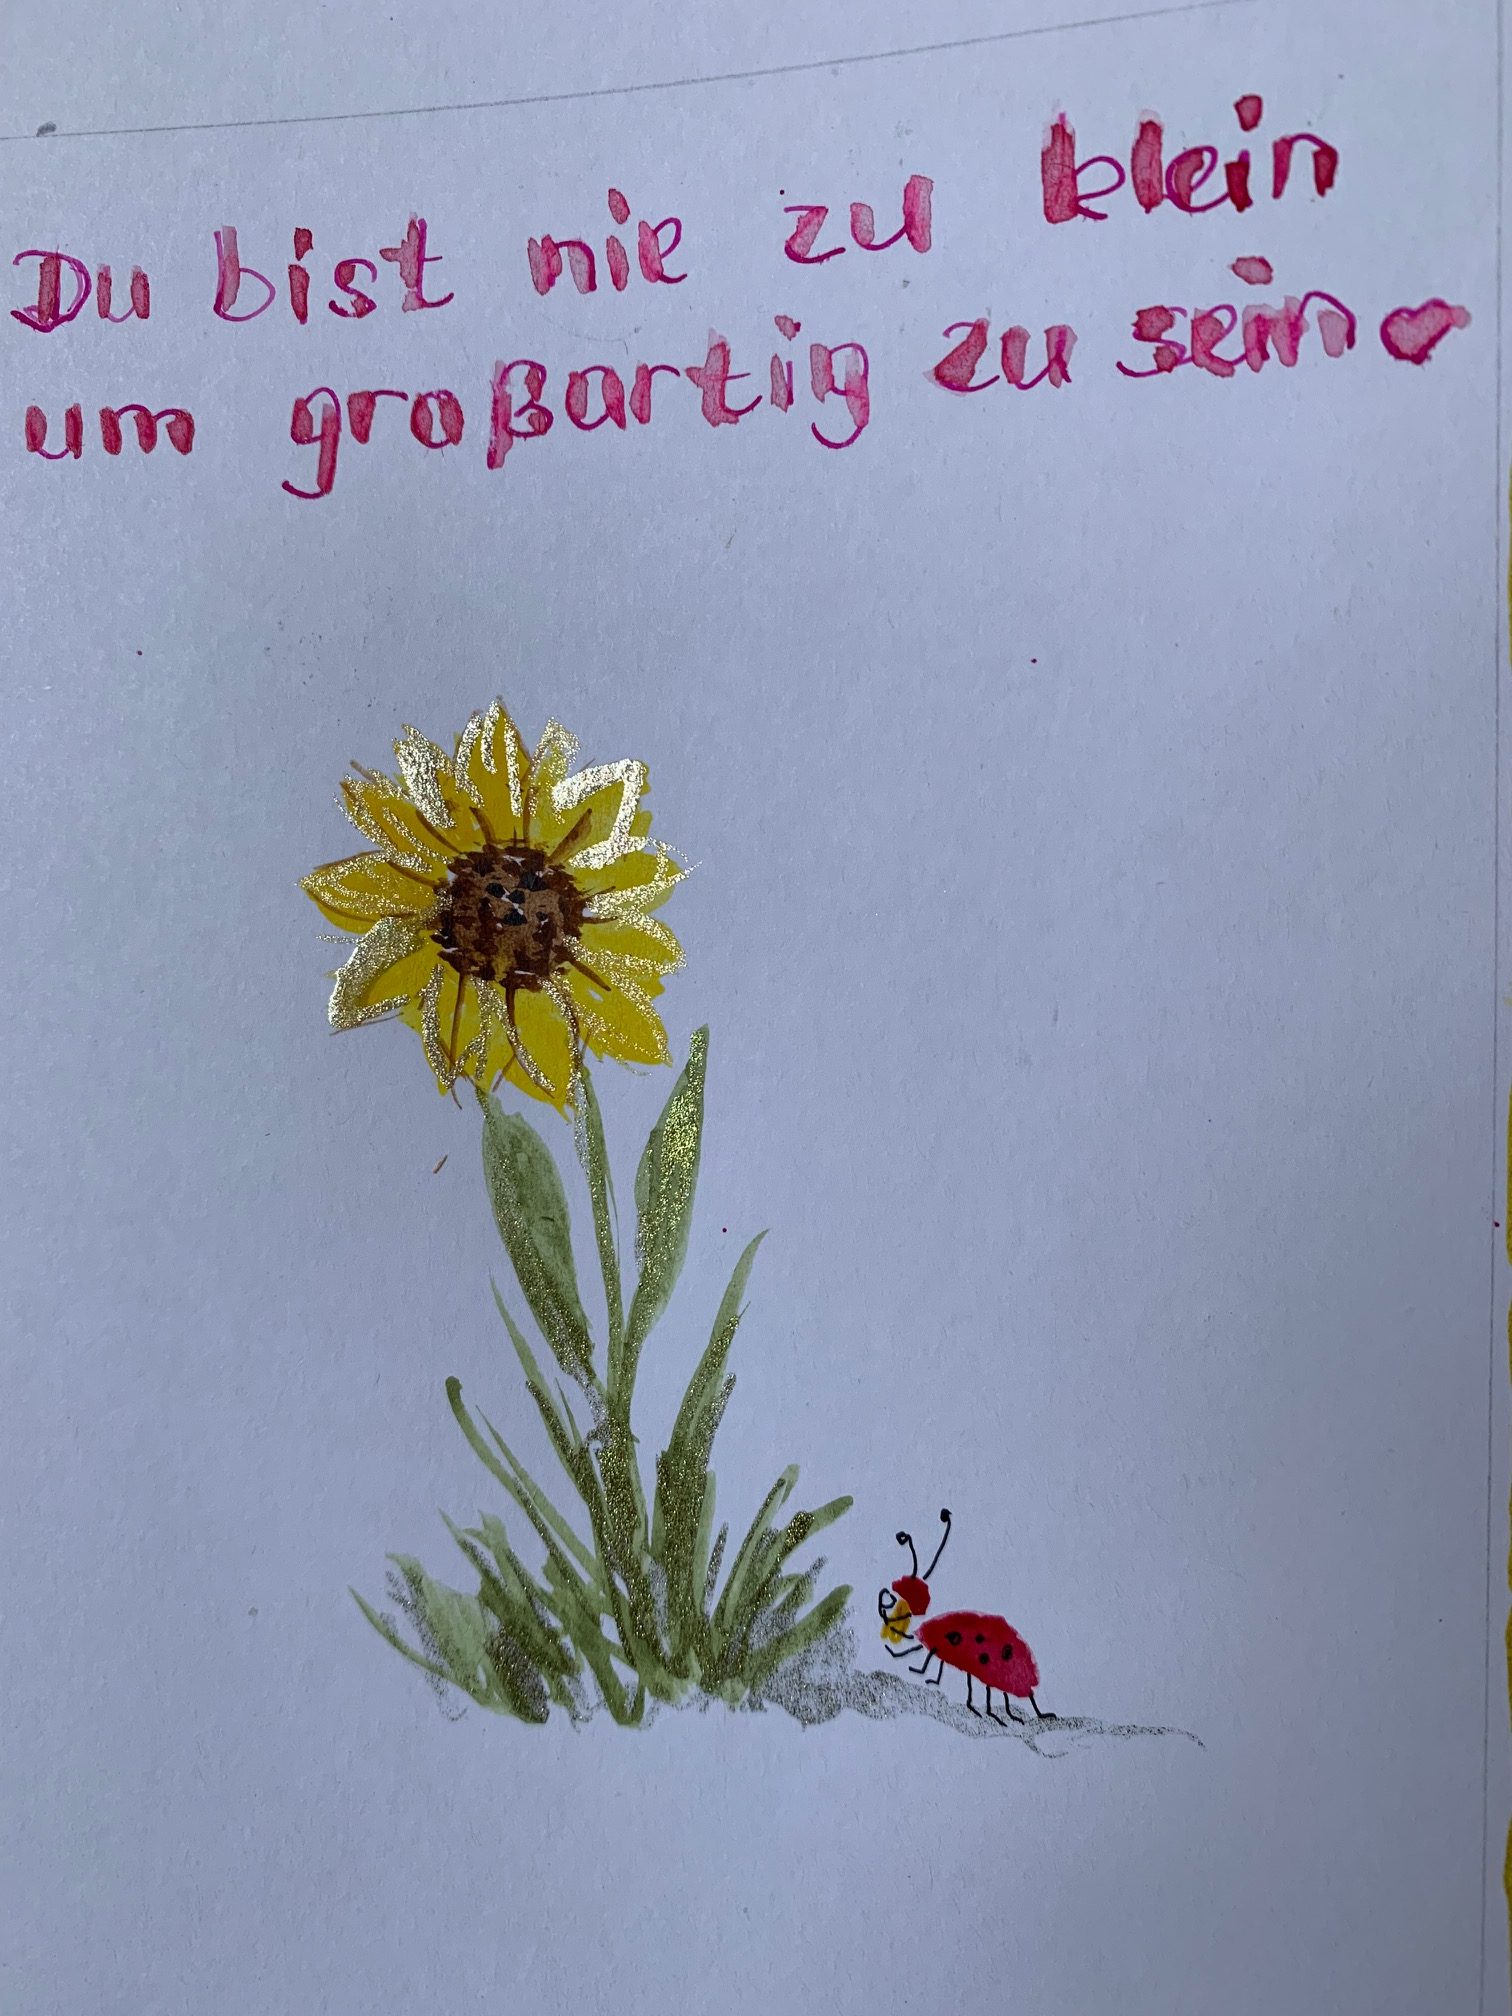 Du bist nie zu klein
um großartig zu sein